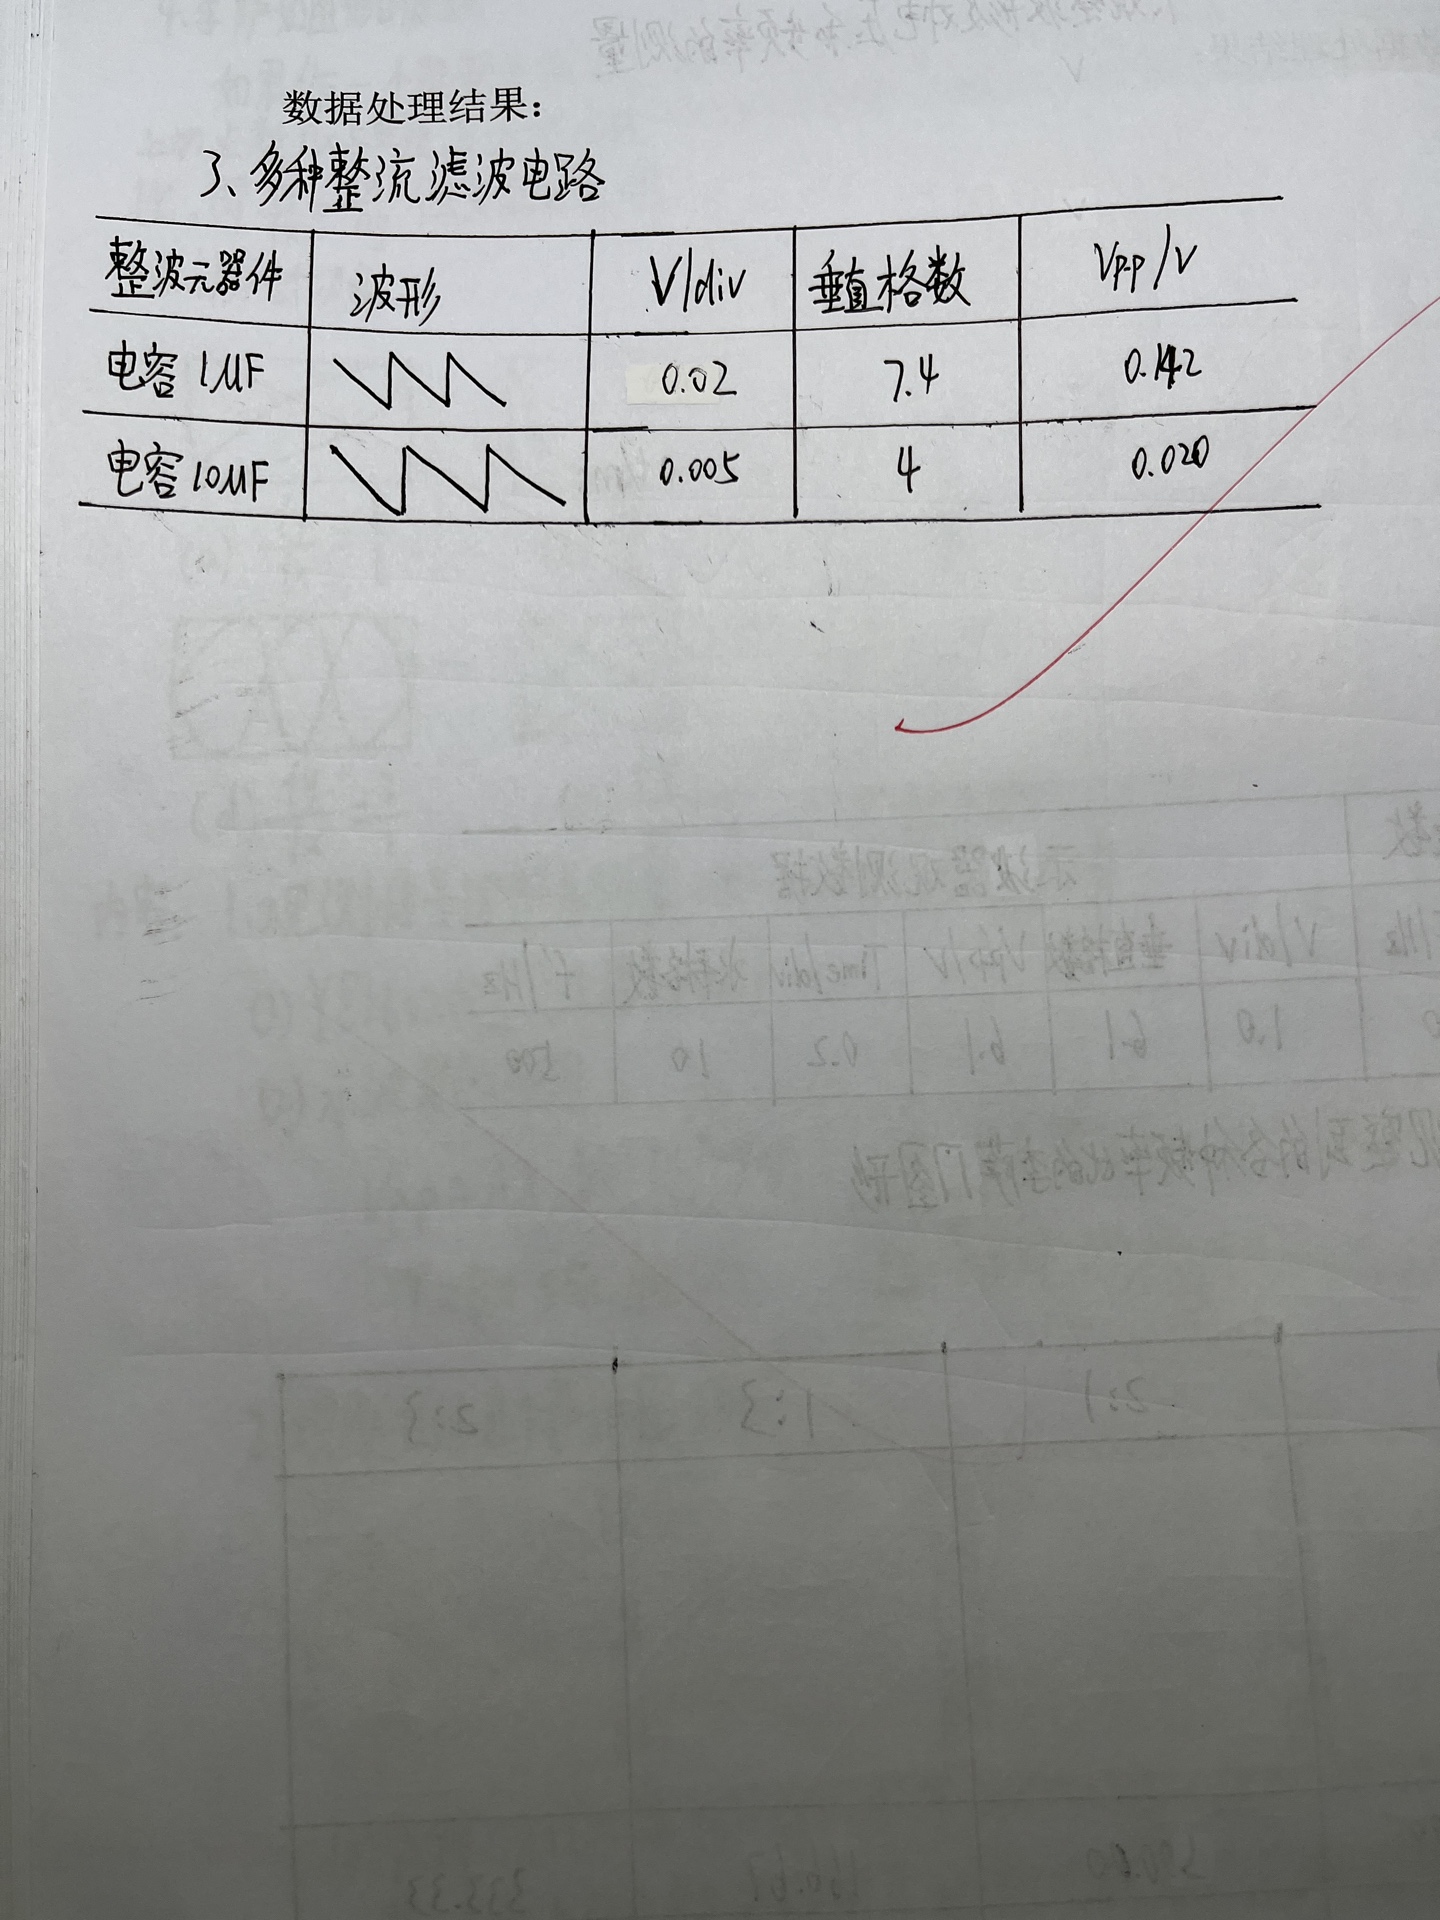 数据处理结果:
3、多种整流滤波电路
整波元器件 波形 V/div 垂直格数 Vp-p/V
电容 1μF 0.02 7.4 0.142
电容 10μF 0.005 4 0.020